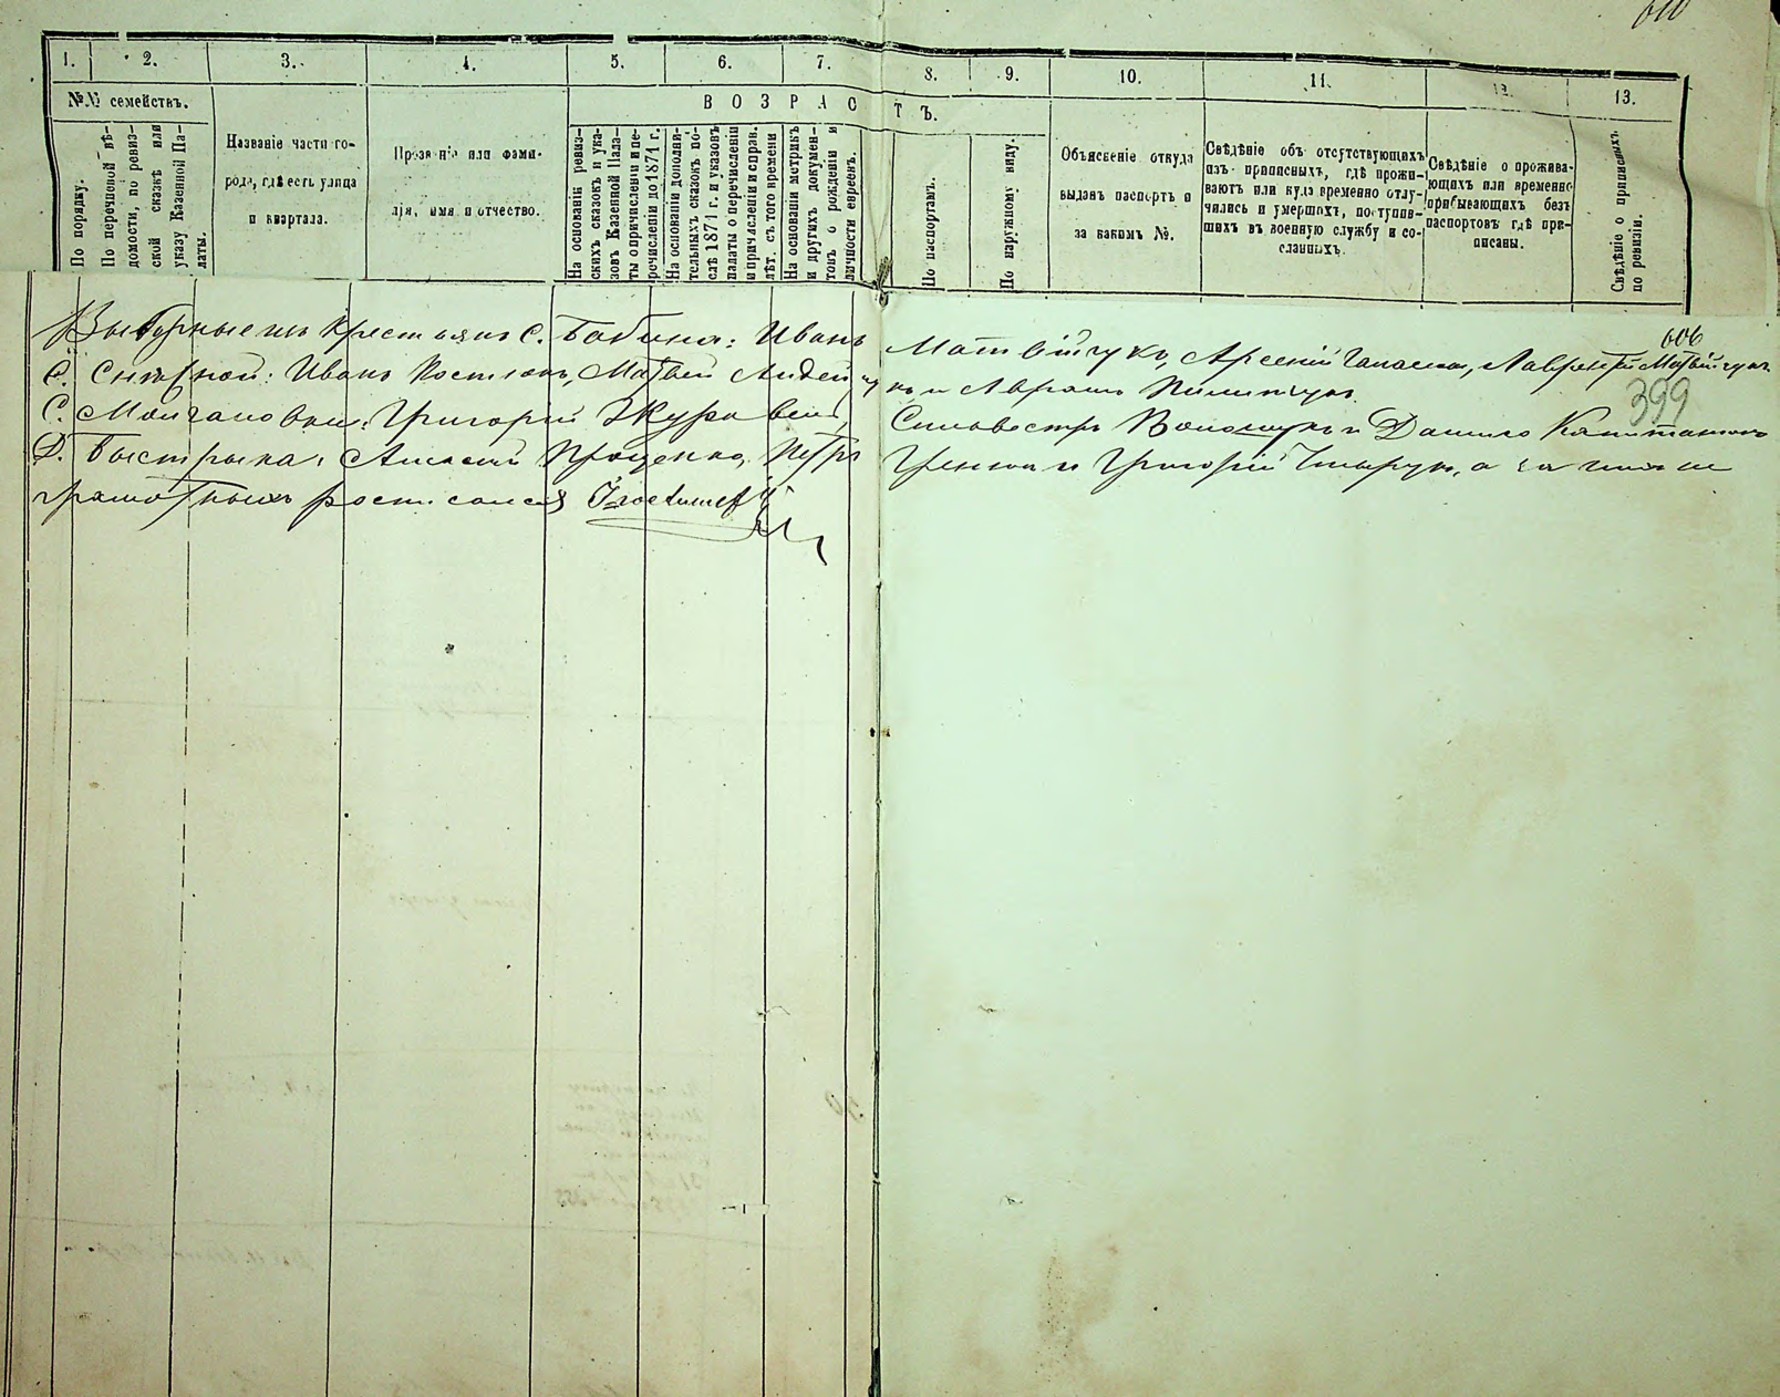 610
1. 2. 3. 4. 5. 6. 7. 8. 9. 10. 11. 12. 13.
№№ семействъ.
В О З Р А С Т Ъ.
По порядку.
По перечневой вѣ-
домости, по ревиз-
ской сказкѣ или
указу Казенной Па-
латы.
Названіе части го-
рода, гдѣ есть улица
и квартала.
Прозваніе или фами-
лія, имя и отчество.
На основаніи ревиз-
скихъ сказокъ и ука-
зовъ Казенной Пала-
ты о причисленіи и пе-
речисленіи до 1871 г.
На основаніи дополни-
тельныхъ сказокъ по-
слѣ 1871 г. и указовъ
палаты о перечисленіи
и причисленіи и справ.
лѣт. съ того времени
На основаніи метрикъ
и другихъ докумен-
товъ о рожденіи и
личности евреевъ.
По паспортамъ.
По наружному виду.
Объясненіе откуда
выданъ паспортъ и
за какимъ №.
Свѣдѣніе объ отсутствующихъ
изъ приписныхъ, гдѣ прожи-
ваютъ или куда временно отлу-
чились и умершихъ, поступив-
шихъ въ военную службу и со-
сланныхъ.
Свѣдѣніе о прожива-
ющихъ или временно
прибывающихъ безъ
паспортовъ гдѣ при-
писаны.
Свѣдѣніе о приписныхъ
по ревизіи.
606
399
Выборные изъ крестьянъ С. Бабина: Иванъ Матвійчукъ, Арсеній Лаврентій Матвійчукъ
С. Иванъ Костюкъ, Матвей и Аврамъ
С. Молчановки: Григорій Журавель, Сильвестръ Волощукъ и Данило
Д. Быстрыка: Алексей Проценко, Петръ и Григорій а за нихъ не
грамотныхъ росписался